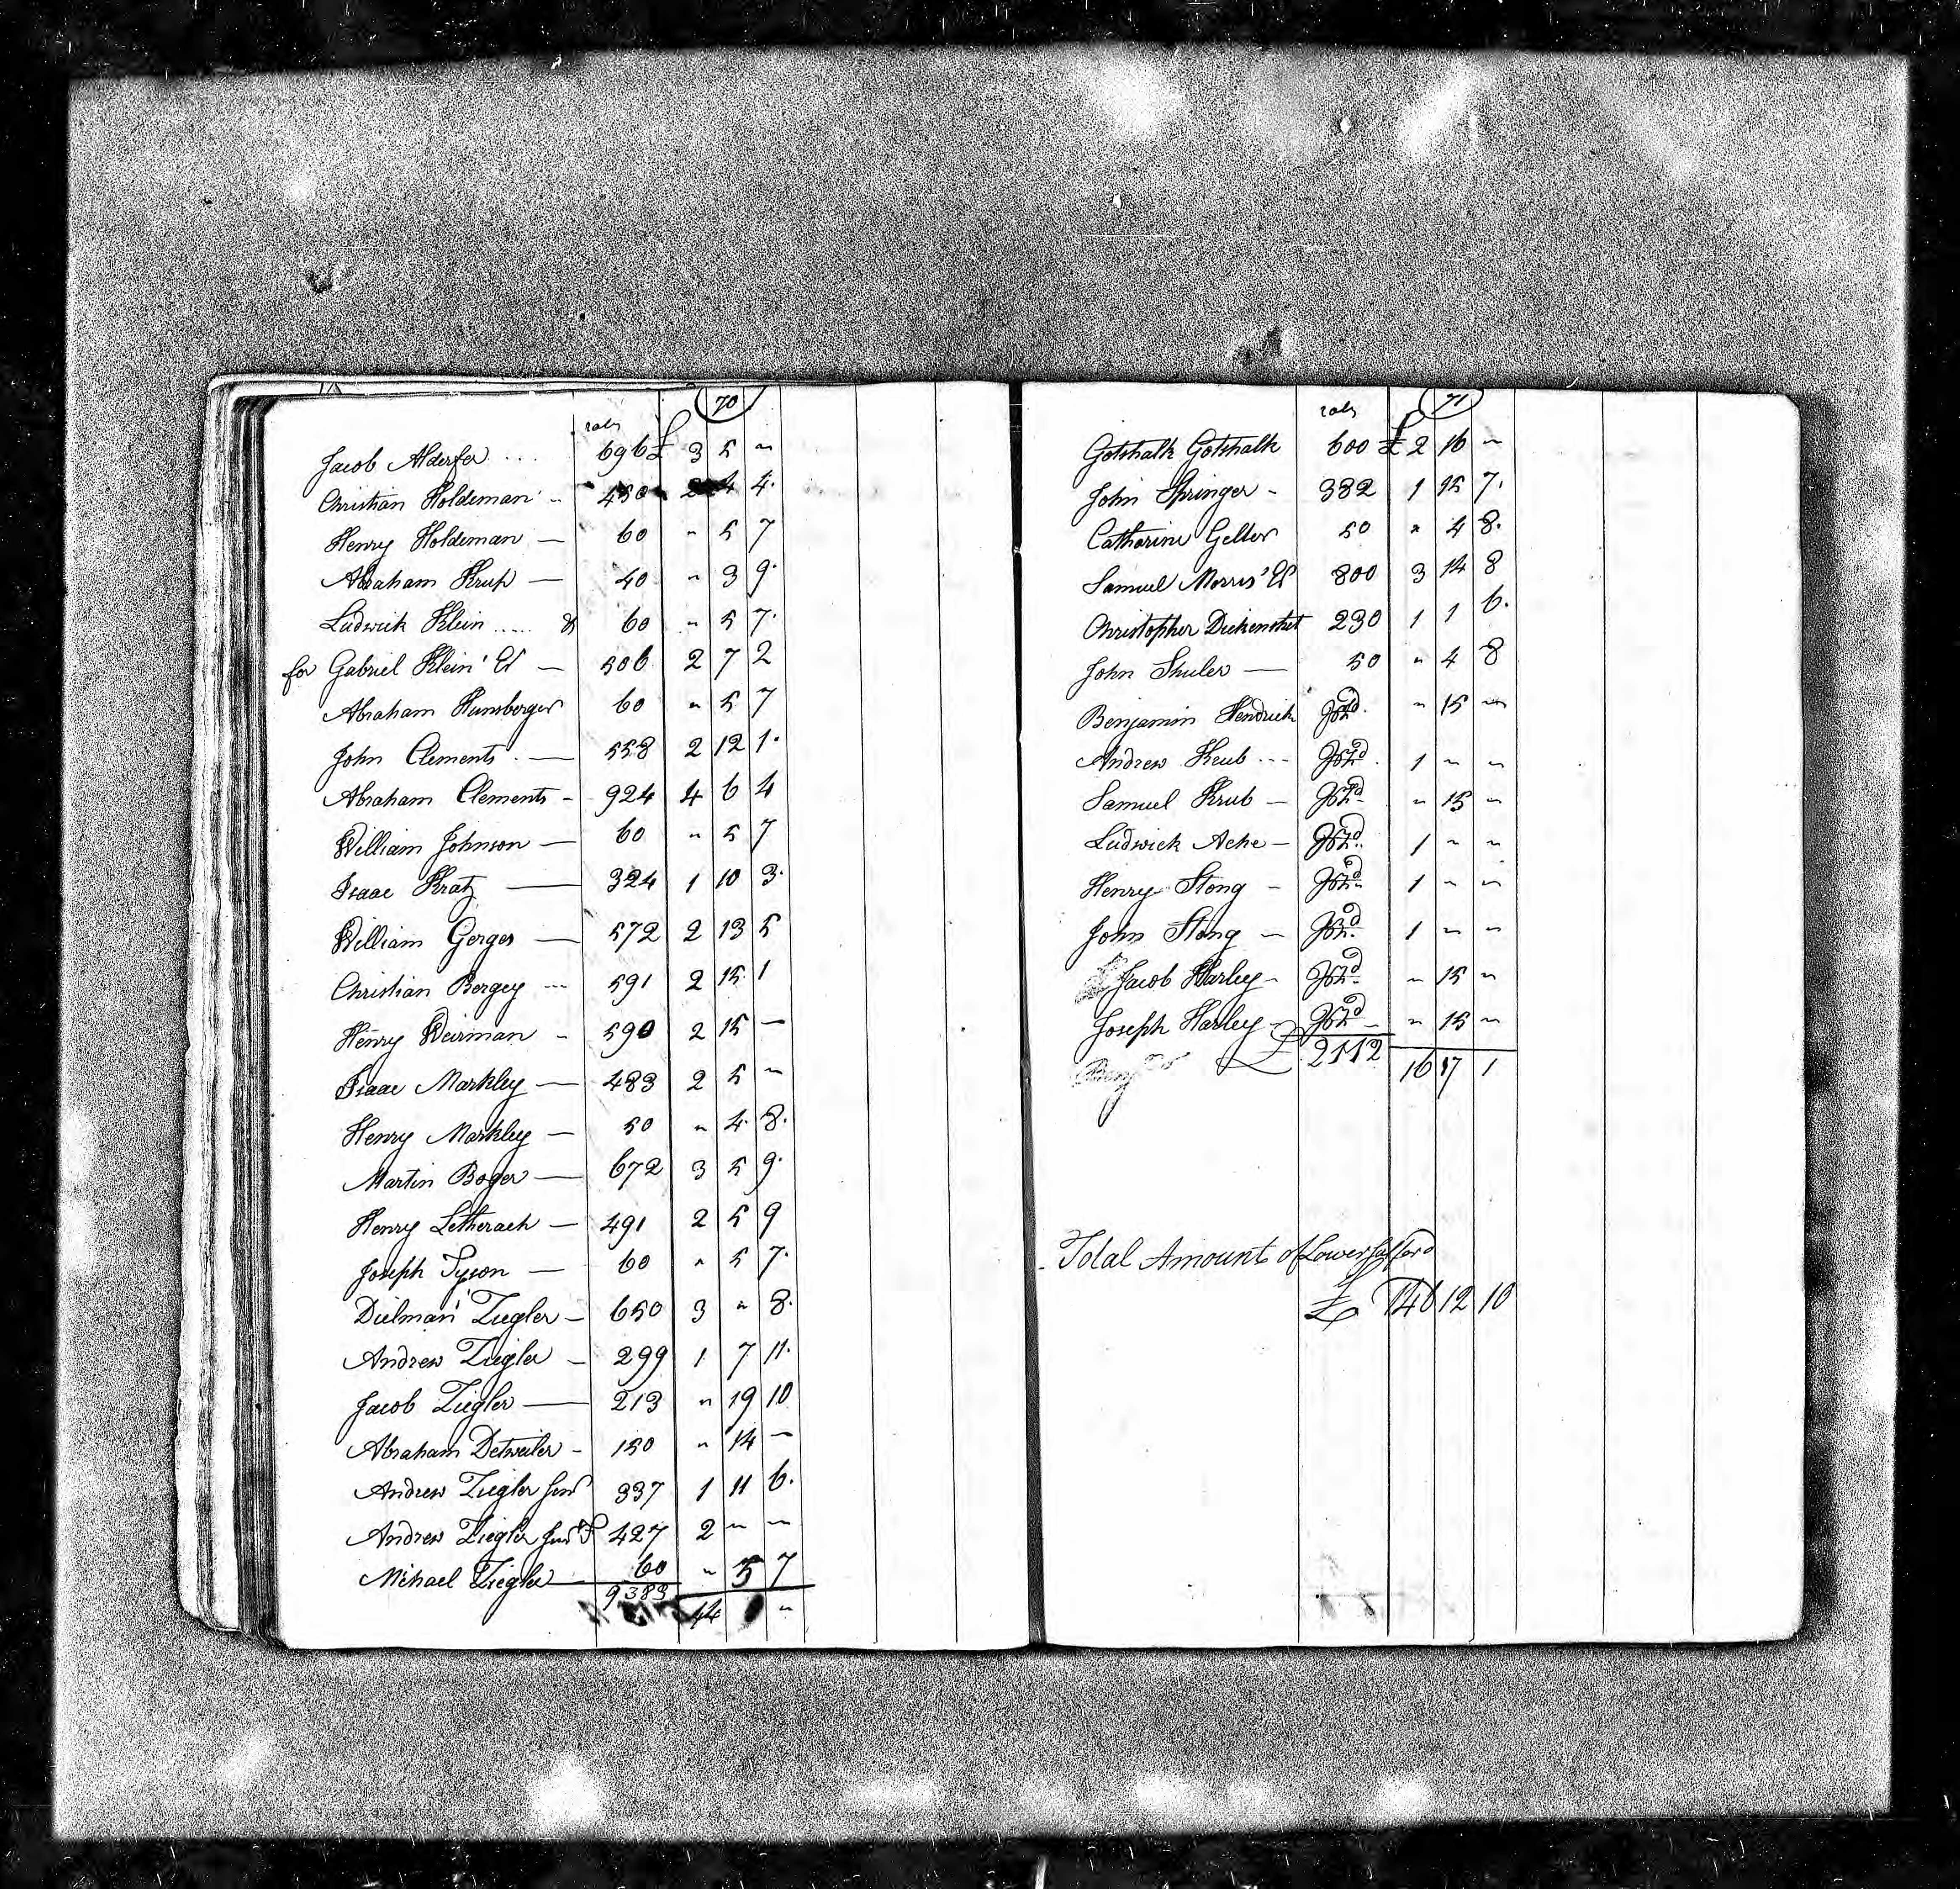 70
rates £
Jacob Alderfer .... 696 £ 3 5 "
Christian Holdeman - 450 2 4 4.
Henry Holdeman — 60 " 5 7
Abraham Krup — 40 " 3 9.
Ludwick Klein ..... & 60 " 5 7.
for Gabriel Klein' Es — 506 2 7 2
Abraham Hunsberger 60 " 5 7
John Clements . — 558 2 12 1.
Abraham Clements - 924 4 6 4
William Johnson — 60 " 5 7
Isaac Kratz — 324 1 10 3.
William Gerges — 572 2 13 5
Christian Bergey --- 591 2 15 1
Henry Weirman - 590 2 15 —
Isaac Markley — 483 2 5 "
Henry Markley — 50 " 4 8.
Martin Boger — 672 3 5 9.
Henry Letherach — 491 2 5 9
Joseph Tyson — 60 " 5 7.
Dielman Ziegler - 650 3 " 8.
Andrew Ziegler - 299 1 7 11.
Jacob Ziegler — 213 " 19 10
Abraham Detweiler - 150 " 14 —
Andrew Ziegler Senr 337 1 11 6.
Andrew Ziegler Junr 427 2 " "
Michael Ziegler — 60 " 5 7
9383 44 "
71
rates £
Gotshalk Gotshalk 600 £ 2 16 "
John Springer - 382 1 15 7.
Catharine Geller 50 " 4 8.
Samuel Morris' Es 800 3 14 8
Christopher Dickenshet 230 1 1 6.
John Shuler — 50 " 4 8
Benjamin Hendrick " 15 "
Andrew Keub --- 1 " "
Samuel Krub — " 15 "
Ludwick Ache — 1 " "
Henry Stong - 1 " "
John Stong — 1 " "
Jacob Harley - " 15 "
Joseph Harley - " 15 "
£ 2112 16 17 1
Total Amount of Lower Salford
£ 146 12 10